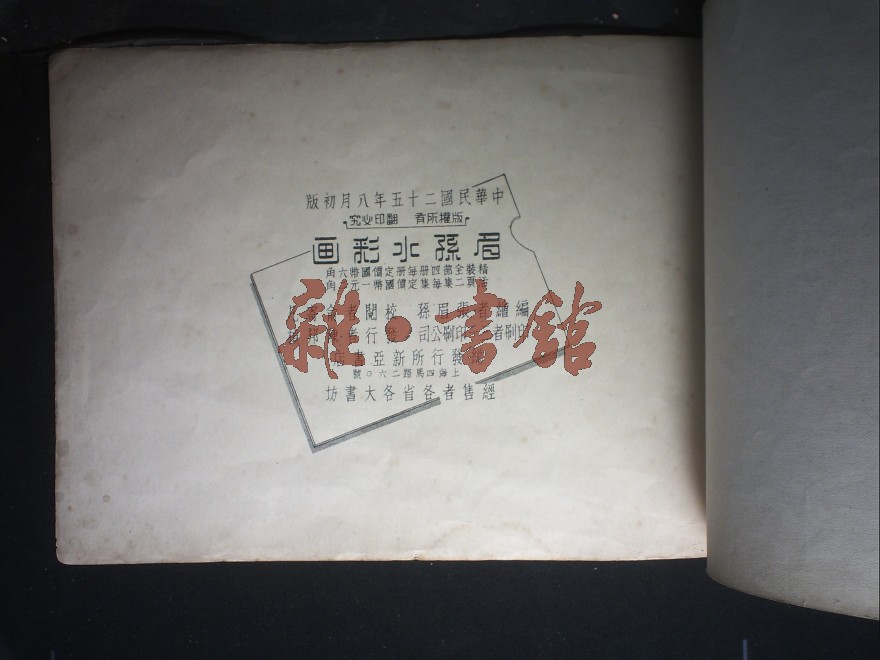 中華民國二十五年八月初版
版權所有 翻印必究
眉孫水彩画
精裝全部四册每册定價國幣六角
活頁二集每集定價國幣一元 角
編繪者張眉孫 校閱者
印刷者 印刷公司 發行者
總發行所新亞書店
上海四馬路二六〇號
經售者各省各大書坊
雜·書館